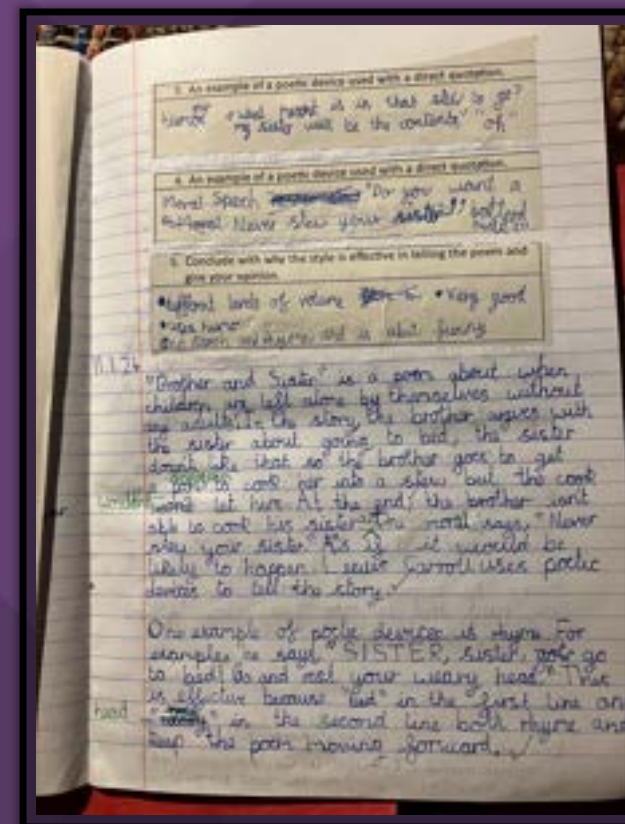 3. An example of a poetic device used with a direct quotation.
humor "what is in that stew to go?
my sister will be the contents" "oh"
4. An example of a poetic device used with a direct quotation.
Moral Speech "Do you want a
Moral Never stew your sister!"
5. Conclude with why the style is effective in telling the poem and
give your opinion.
of volume • Very good
and is funny
"Brother and Sister" is a poem about when
children are left alone by themselves without
any adults. In the story, the brother argues with
the sister about going to bed, the sister
doesn't like that so the brother goes to get
a to cook her into a stew but the cook
won't let him. At the end, the brother isn't
able to cook his sister. The moral says, "Never
stew your sister" As if it would be
likely to happen. Lewis Carroll uses poetic
devices to tell the story.
One example of poetic devices is rhyme. For
example, he says "SISTER, sister, go
to bed! Go and rest your weary head." This
is effective because "bed" in the first line and
head
in the second line both rhyme and
keep the poem moving forward.